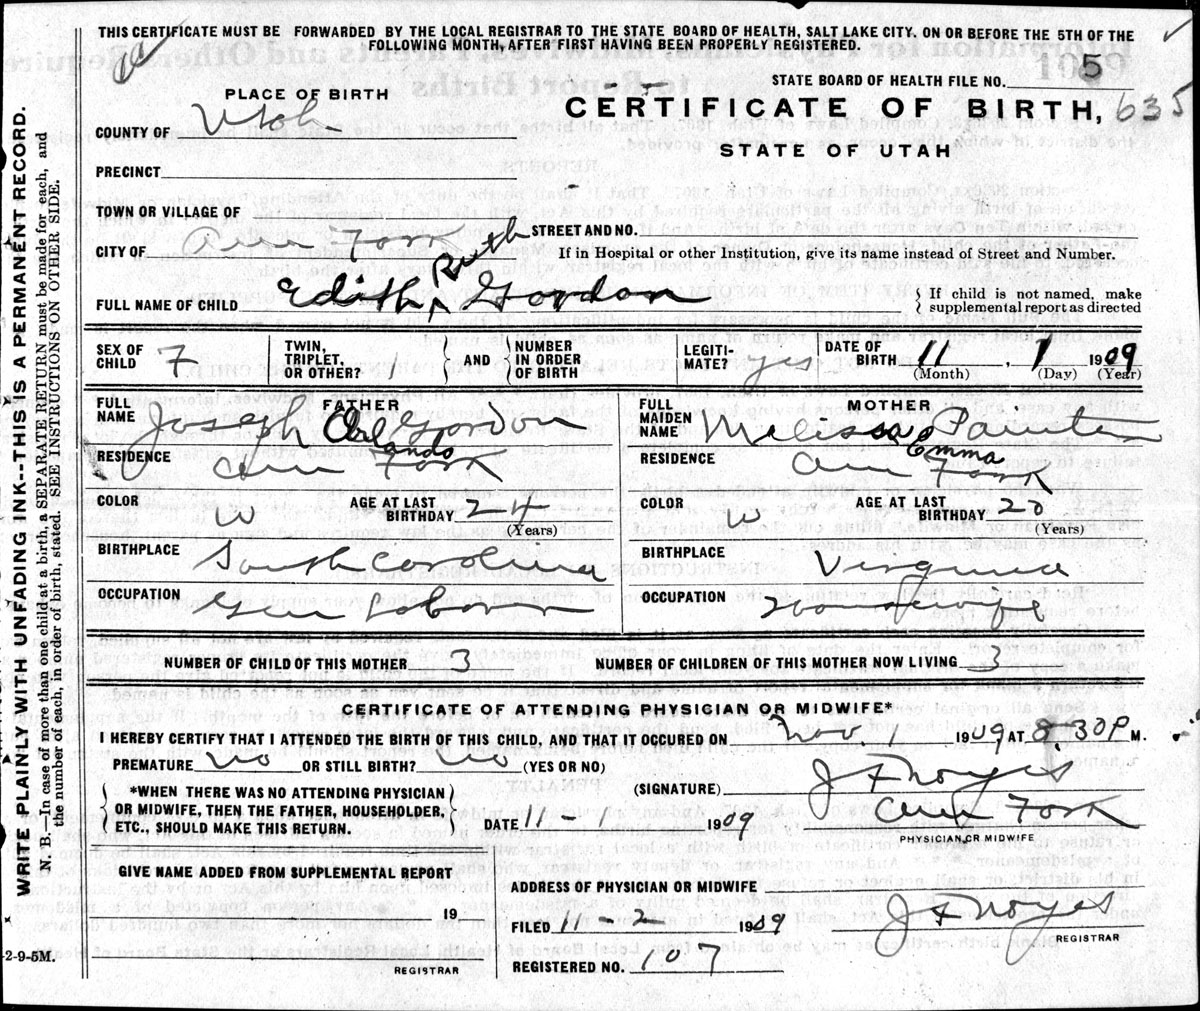 THIS CERTIFICATE MUST BE FORWARDED BY THE LOCAL REGISTRAR TO THE STATE BOARD OF HEALTH, SALT LAKE CITY. ON OR BEFORE THE 5TH OF THE
FOLLOWING MONTH, AFTER FIRST HAVING BEEN PROPERLY REGISTERED.
STATE BOARD OF HEALTH FILE NO. 5
PLACE OF BIRTH
CERTIFICATE OF BIRTH, 635
COUNTY OF Utah
STATE OF UTAH
PRECINCT
TOWN OR VILLAGE OF
CITY OF Am Fork STREET AND NO.
If in Hospital or other Institution, give its name instead of Street and Number.
Ruth
FULL NAME OF CHILD Edith ^ Gordon { If child is not named, make
supplemental report as directed
SEX OF CHILD F TWIN, TRIPLET, OR OTHER? 1 AND NUMBER IN ORDER OF BIRTH LEGITIMATE? yes DATE OF BIRTH 11, 1 1909
(Month) (Day) (Year)
FATHER
FULL NAME Joseph Orlando Gordon
RESIDENCE Am Fork
COLOR W AGE AT LAST BIRTHDAY 24
(Years)
BIRTHPLACE South Carolina
OCCUPATION Gen Laborer
MOTHER
FULL MAIDEN NAME Melissa Emma
RESIDENCE Am Fork
COLOR W AGE AT LAST BIRTHDAY 20
(Years)
BIRTHPLACE Virginia
OCCUPATION Housewife
NUMBER OF CHILD OF THIS MOTHER 3 NUMBER OF CHILDREN OF THIS MOTHER NOW LIVING 3
CERTIFICATE OF ATTENDING PHYSICIAN OR MIDWIFE*
I HEREBY CERTIFY THAT I ATTENDED THE BIRTH OF THIS CHILD, AND THAT IT OCCURED ON Nov 1, 1909 AT 8.30P M.
PREMATURE no OR STILL BIRTH? no (YES OR NO)
*WHEN THERE WAS NO ATTENDING PHYSICIAN
OR MIDWIFE, THEN THE FATHER, HOUSEHOLDER,
ETC., SHOULD MAKE THIS RETURN.
(SIGNATURE) J F Noyes
Am Fork
PHYSICIAN OR MIDWIFE
DATE 11- 1909
GIVE NAME ADDED FROM SUPPLEMENTAL REPORT
19
REGISTRAR
ADDRESS OF PHYSICIAN OR MIDWIFE
FILED 11-2 1909 J F Noyes
REGISTRAR
REGISTERED NO. 107
WRITE PLAINLY WITH UNFADING INK--THIS IS A PERMANENT RECORD.
N. B.—In case of more than one child at a birth, a SEPARATE RETURN must be made for each, and
the number of each, in order of birth, stated. SEE INSTRUCTIONS ON OTHER SIDE.
2-9-5M.